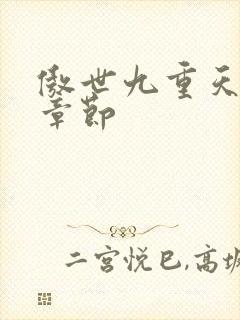 傲世九重天
章节
二宫悦巳,高坂